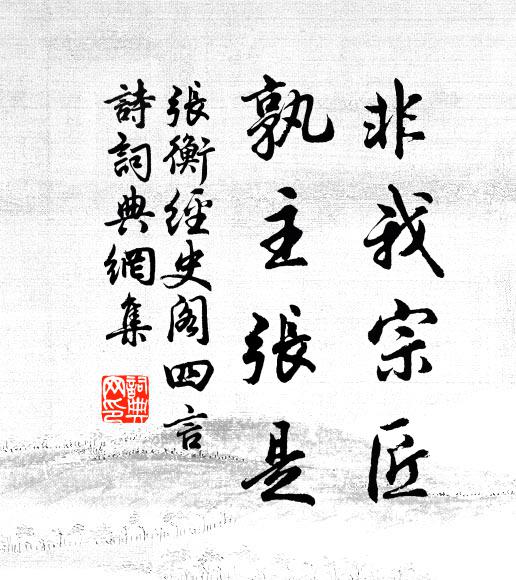 非我宗匠
孰主張是
張衡經史阁四言
詩詞典網集
詞典网印